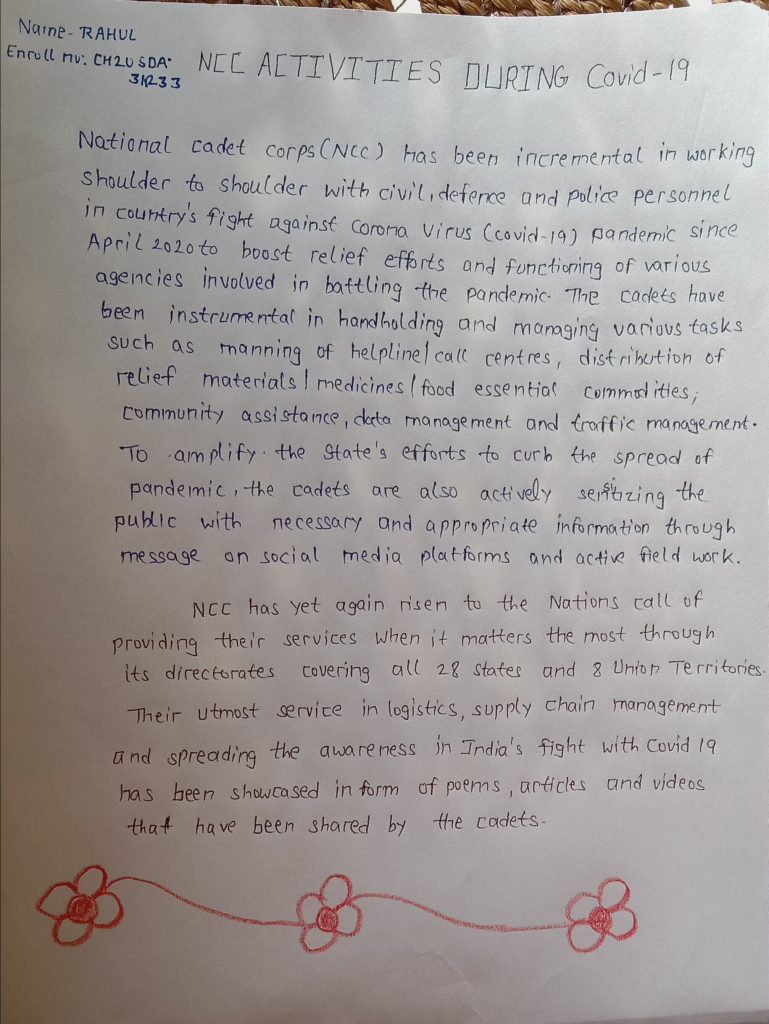 Name- RAHUL
Enroll no: CH20SDA
31233
NCC ACTIVITIES DURING Covid-19
National cadet corps (NCC) has been incremental in working
shoulder to shoulder with civil, defence and police personnel
in country's fight against Corona Virus (covid-19) pandemic since
April 2020 to boost relief efforts and functioning of various
agencies involved in battling the pandemic. The cadets have
been instrumental in handholding and managing various tasks
such as manning of helpline/call centres, distribution of
relief materials/medicines/food essential commodities,
community assistance, data management and traffic management.
To amplify the State's efforts to curb the spread of
pandemic, the cadets are also actively the
public with necessary and appropriate information through
message on social media platforms and active field work.
NCC has yet again risen to the Nations call of
providing their services when it matters the most through
its directorates covering all 28 states and 8 Union Territories.
Their utmost service in logistics, supply chain management
and spreading the awareness in India's fight with Covid 19
has been showcased in form of poems, articles and videos
that have been shared by the cadets.